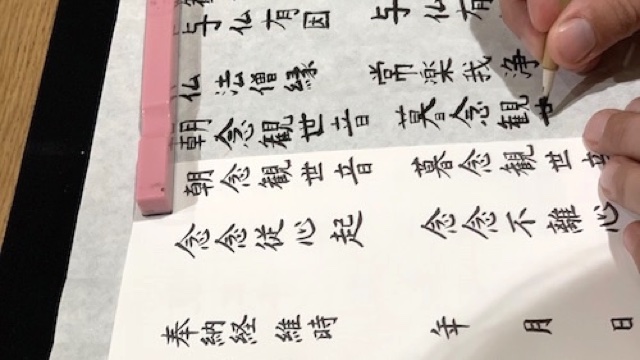 与仏有因 与仏有
仏法僧縁 常楽我浄
朝念観世音 暮念観世
朝念観世音 暮念観世音
念念従心起 念念不離心
奉納経 維時 年 月 日